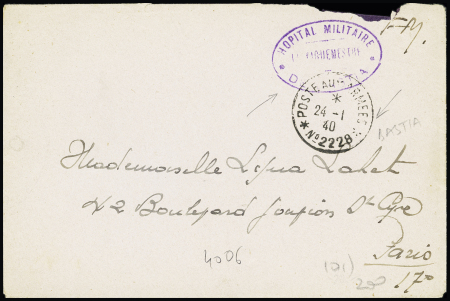 F.M.
HOPITAL MILITAIRE
VAGUEMESTRE
POSTE AUX ARMEES
24-1
40
N° 2228
BASTIA
Mademoiselle
42 Boulevard Gouvion St Cyr
Paris
17º
4006